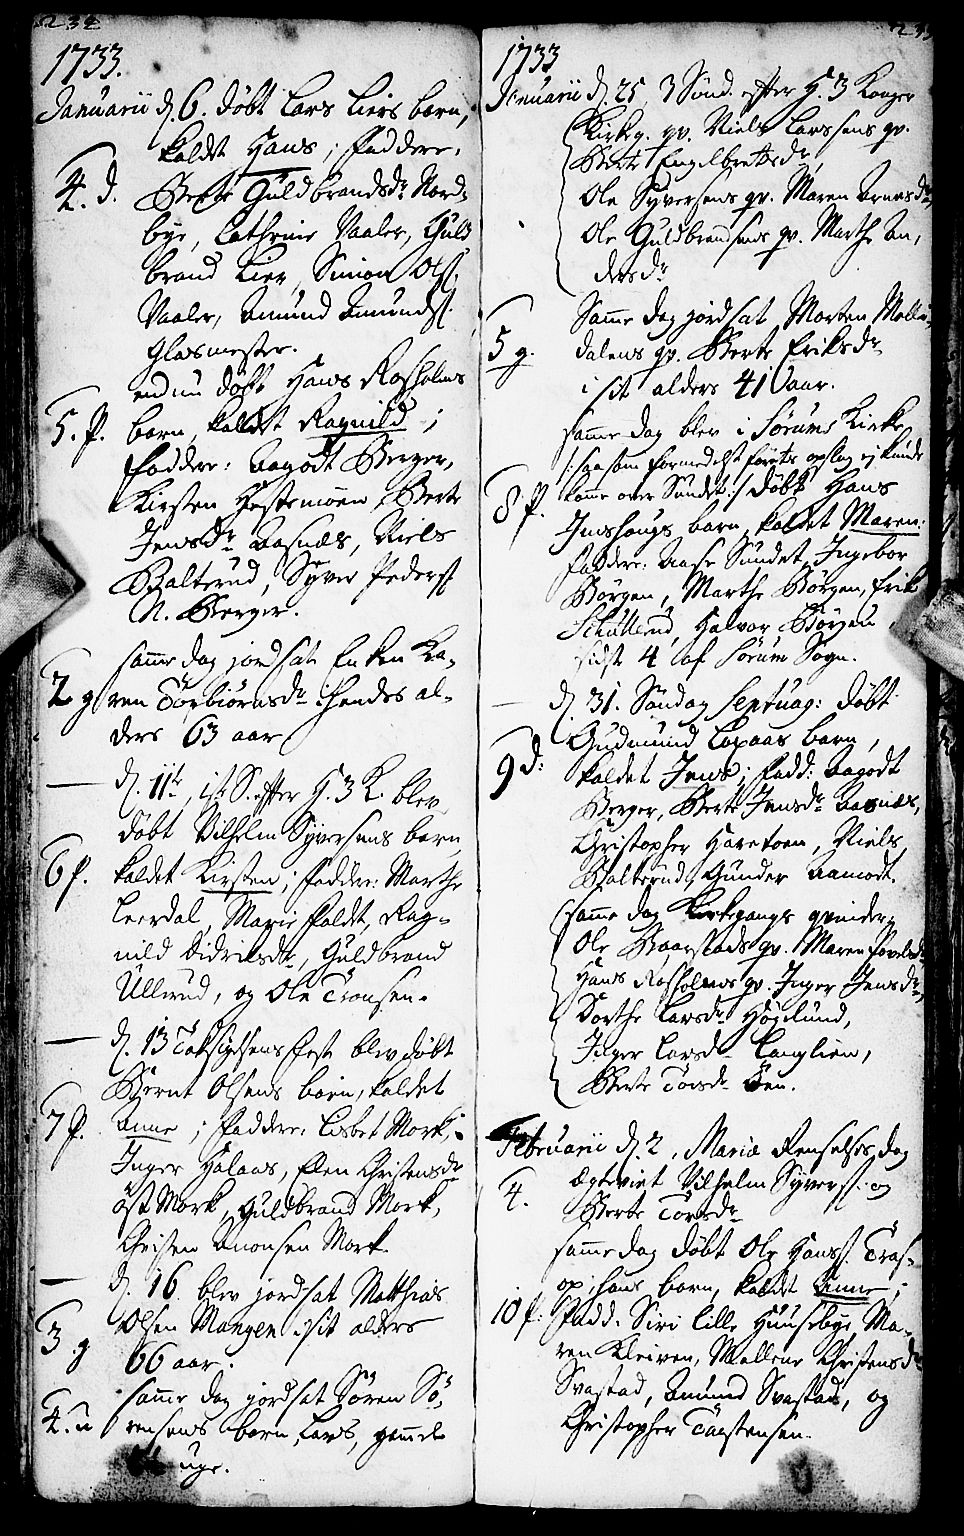 234
1733.
Januarii d. 6. döbt Lars Liers barn,
kaldet Hans; faddere:
4. d. Berte Guldbrandsdr Nord-
bye, Cathrine Vaaler, Guld
brand Lier, Simon Ols.
Vaaler, Amund Amunds.
Glasmester.
endnu döbt Hans Rasholms
5. p. barn, kaldet Ragnild;
faddere: Aagodt Berger,
Kirsten Hestemoen, Berte
Jensdr Aasnæs, Niels
Balterud, Syver Peders.
N. Berger.
samme dag jordsat Enken Ka-
2 g ren Torbiörnsdr hendes al-
ders 63 aar
d. 11te, 1st S. efter H. 3 K. blev
döbt Vilhelm Syversens barn
6 p. kaldet Kirsten; faddere: Marthe
Leerdal, Marie Faldt, Rag-
nild Didriksdr, Guldbrand
Ullerud, og Ole Tronsen.
d. 13 Taksigelsens fest blev döbt
Bernt Olsens barn, kaldet
7 p. Anne; faddere: Lisbet Mork,
Inger Halaas, Elen Christensdr
öst Mork, Guldbrand Mork,
Christen Amonsen Mork.
d. 16. blev jordsat Matthias
3 g Olsen Mangen i sit alders
66 aar.
samme dag jordsat Sören Sö-
4. u rensens barn, Lars, gammel
uge.
1733
Januarii d. 25, 3 Sönd. efter H. 3 Konger
Kirkeg. qv. Niels Larssens qv.
Berte Engelbretsdr
Ole Syversens qv. Maren Arnesdr,
Ole Guldbrandsens qv. Marthe An,
dersdr
Samme dag jordsat Morten Molle-
5 g. dalens qv. Berte Eriksdr
i sit alders 41 aar.
samme dag blev i Sörums Kirke
/: saasom formedelst förets opslag ej kunde
8 p. komme over Sundet :/ döbt Hans
Imshaugs barn, kaldet Maren:
faddere: Aase Sundet, Ingebor
Börgen, Marthe Börgen, Erik
Halvor Börgen,
sidst 4 af Sörum Sogn.
d. 31. Söndag Septuag: döbt
Gudmund Lopaas barn,
9 d: kaldet Jens; fadd: Aagodt
Berger, Berte Jensdr Aasnæs,
Christopher Haretoen, Niels
Balterud, Gunder Aamodt.
samme dag Kirkegangs qvinder,
Ole Baarstads qv. Maren Povelsdr
Hans Rasholms qv. Inger Jensdr,
Dorthe Larsdr Högelund,
Inger Larsdr Langlien,
Berte Torsdr Öen.
Februarii d. 2, Mariæ Renselses dag
4. ægteviet Vilhelm Syvers. og
Berte Torsdr
samme dag döbt Ole Hanss. Tras-
op: hans barn, kaldet Anne;
10 p: Fadd. Siri lille Huusebye, Ma-
ren Kleiven, Mallene Christensdr
Svarstad, Amund Svarstad, og
Christopher Torstensen.